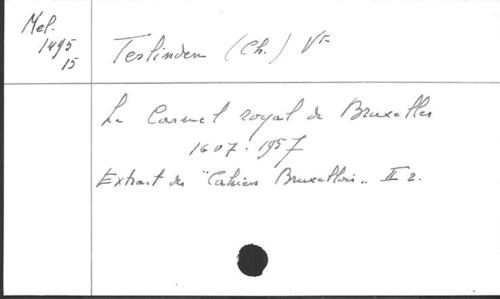 Mel.
1495
15
Terlinden (Ch.) Vte
Le Carmel royal de Bruxelles
1607-1957
Extrait des "Cahiers Bruxellois" II 2.